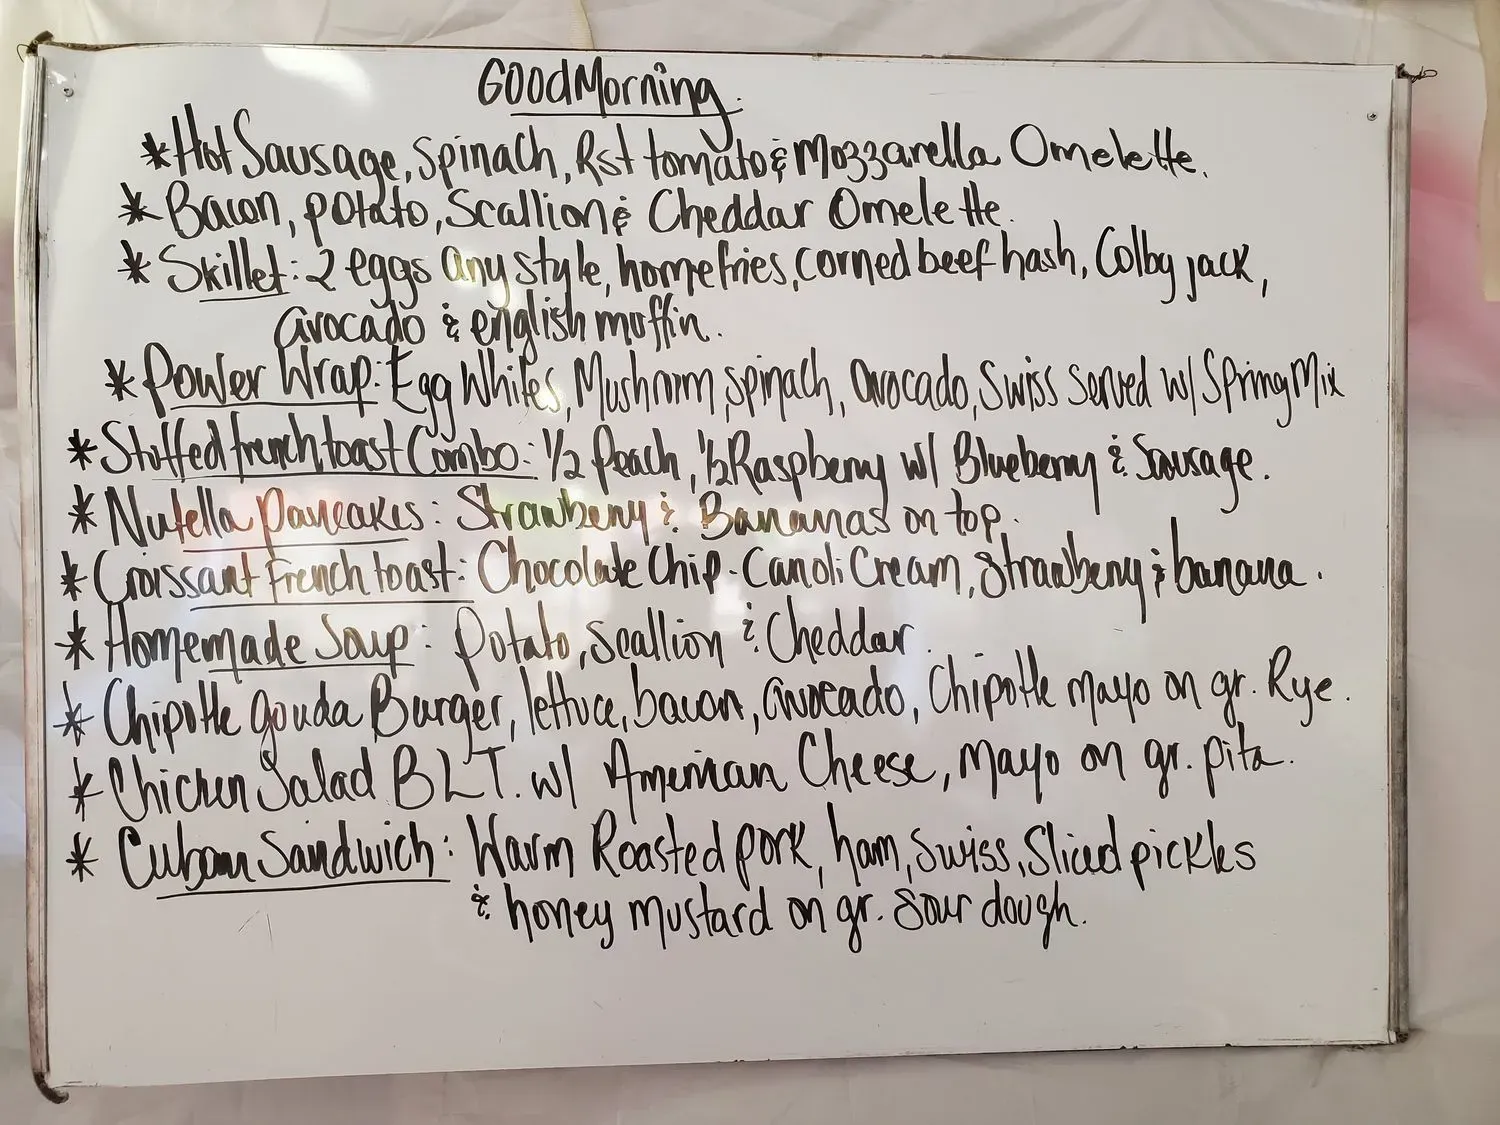 Good Morning.
* Hot Sausage, Spinach, Rst tomato & Mozzarella Omelette.
* Bacon, potato, Scallion & Cheddar Omelette.
* Skillet: 2 eggs any style, homefries, corned beef hash, Colby jack,
avocado & english muffin.
* Power Wrap: Egg Whites, Mushroom, spinach, avocado, Swiss served w/ Spring Mix
* Stuffed french toast Combo: 1/2 Peach, 1/2 Raspberry w/ Blueberry & Sausage.
* Nutella pancakes: Strawberry & Bananas on top.
* Croissant French toast: Chocolate Chip-Canoli Cream, Strawberry & banana.
* Homemade Soup: Potato, Scallion & Cheddar.
* Chipotle gouda Burger, lettuce, bacon, avocado, Chipotle mayo on gr. Rye.
* Chicken Salad BLT. w/ American Cheese, mayo on gr. pita.
* Cuban Sandwich: Warm Roasted pork, ham, Swiss, Sliced pickles
& honey mustard on gr. Sour dough.